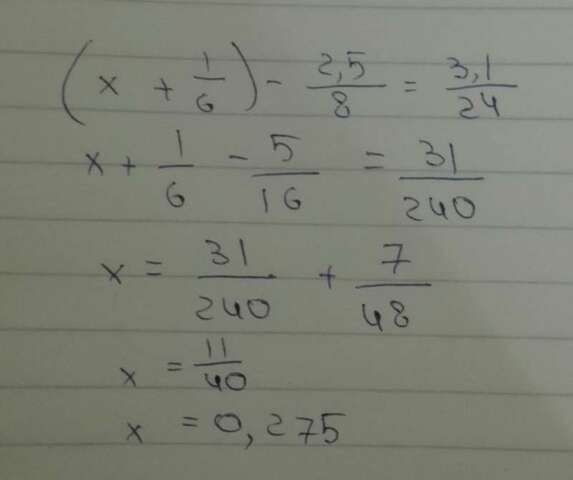 (x + 1/6) - 2,5/8 = 3,1/24
x + 1/6 - 5/16 = 31/240
x = 31/240 + 7/48
x = 11/40
x = 0,275